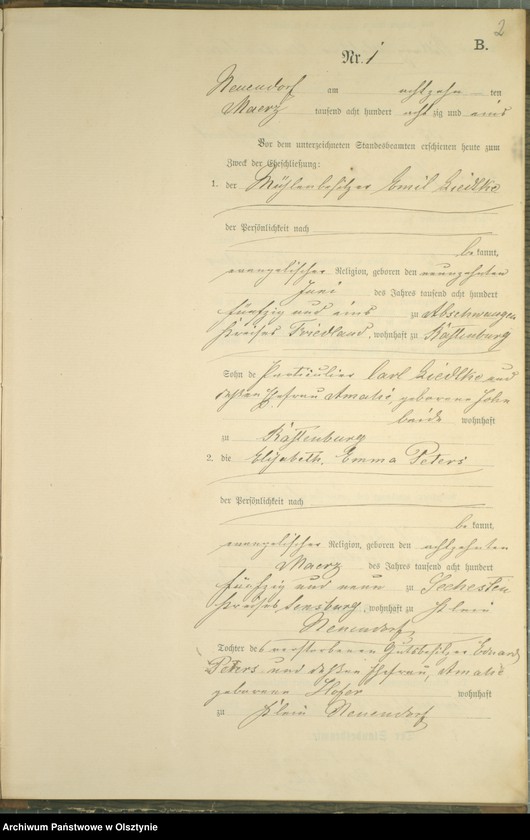 2
B.
Nr. 1
Neuendorf am achtzehn ten
Maerz tausend acht hundert achtzig und eins
Vor dem unterzeichneten Standesbeamten erschienen heute zum
Zweck der Eheschließung:
1. der Mühlenbesitzer Emil Liedtke
der Persönlichkeit nach
bekannt,
evangelischer Religion, geboren den neunzehnten
Juni des Jahres tausend acht hundert
fünfzig und eins zu Abschwangen
Kreises Friedland, wohnhaft zu Rastenburg
Sohn de Particulier Carl Liedtke und
dessen Ehefrau Amalie, geborene
beide wohnhaft
zu Rastenburg
2. die Elisabeth, Emma Peters
der Persönlichkeit nach
bekannt,
evangelischer Religion, geboren den achtzehnten
Maerz des Jahres tausend acht hundert
fünfzig und neun zu Sechesten
Kreises Sensburg, wohnhaft zu Klein
Neuendorf
Tochter des verstorbenen Gutsbesitzer Eduard
Peters und dessen Ehefrau, Amalie
geborene Hofer wohnhaft
zu Klein Neuendorf
Archiwum Państwowe w Olsztynie